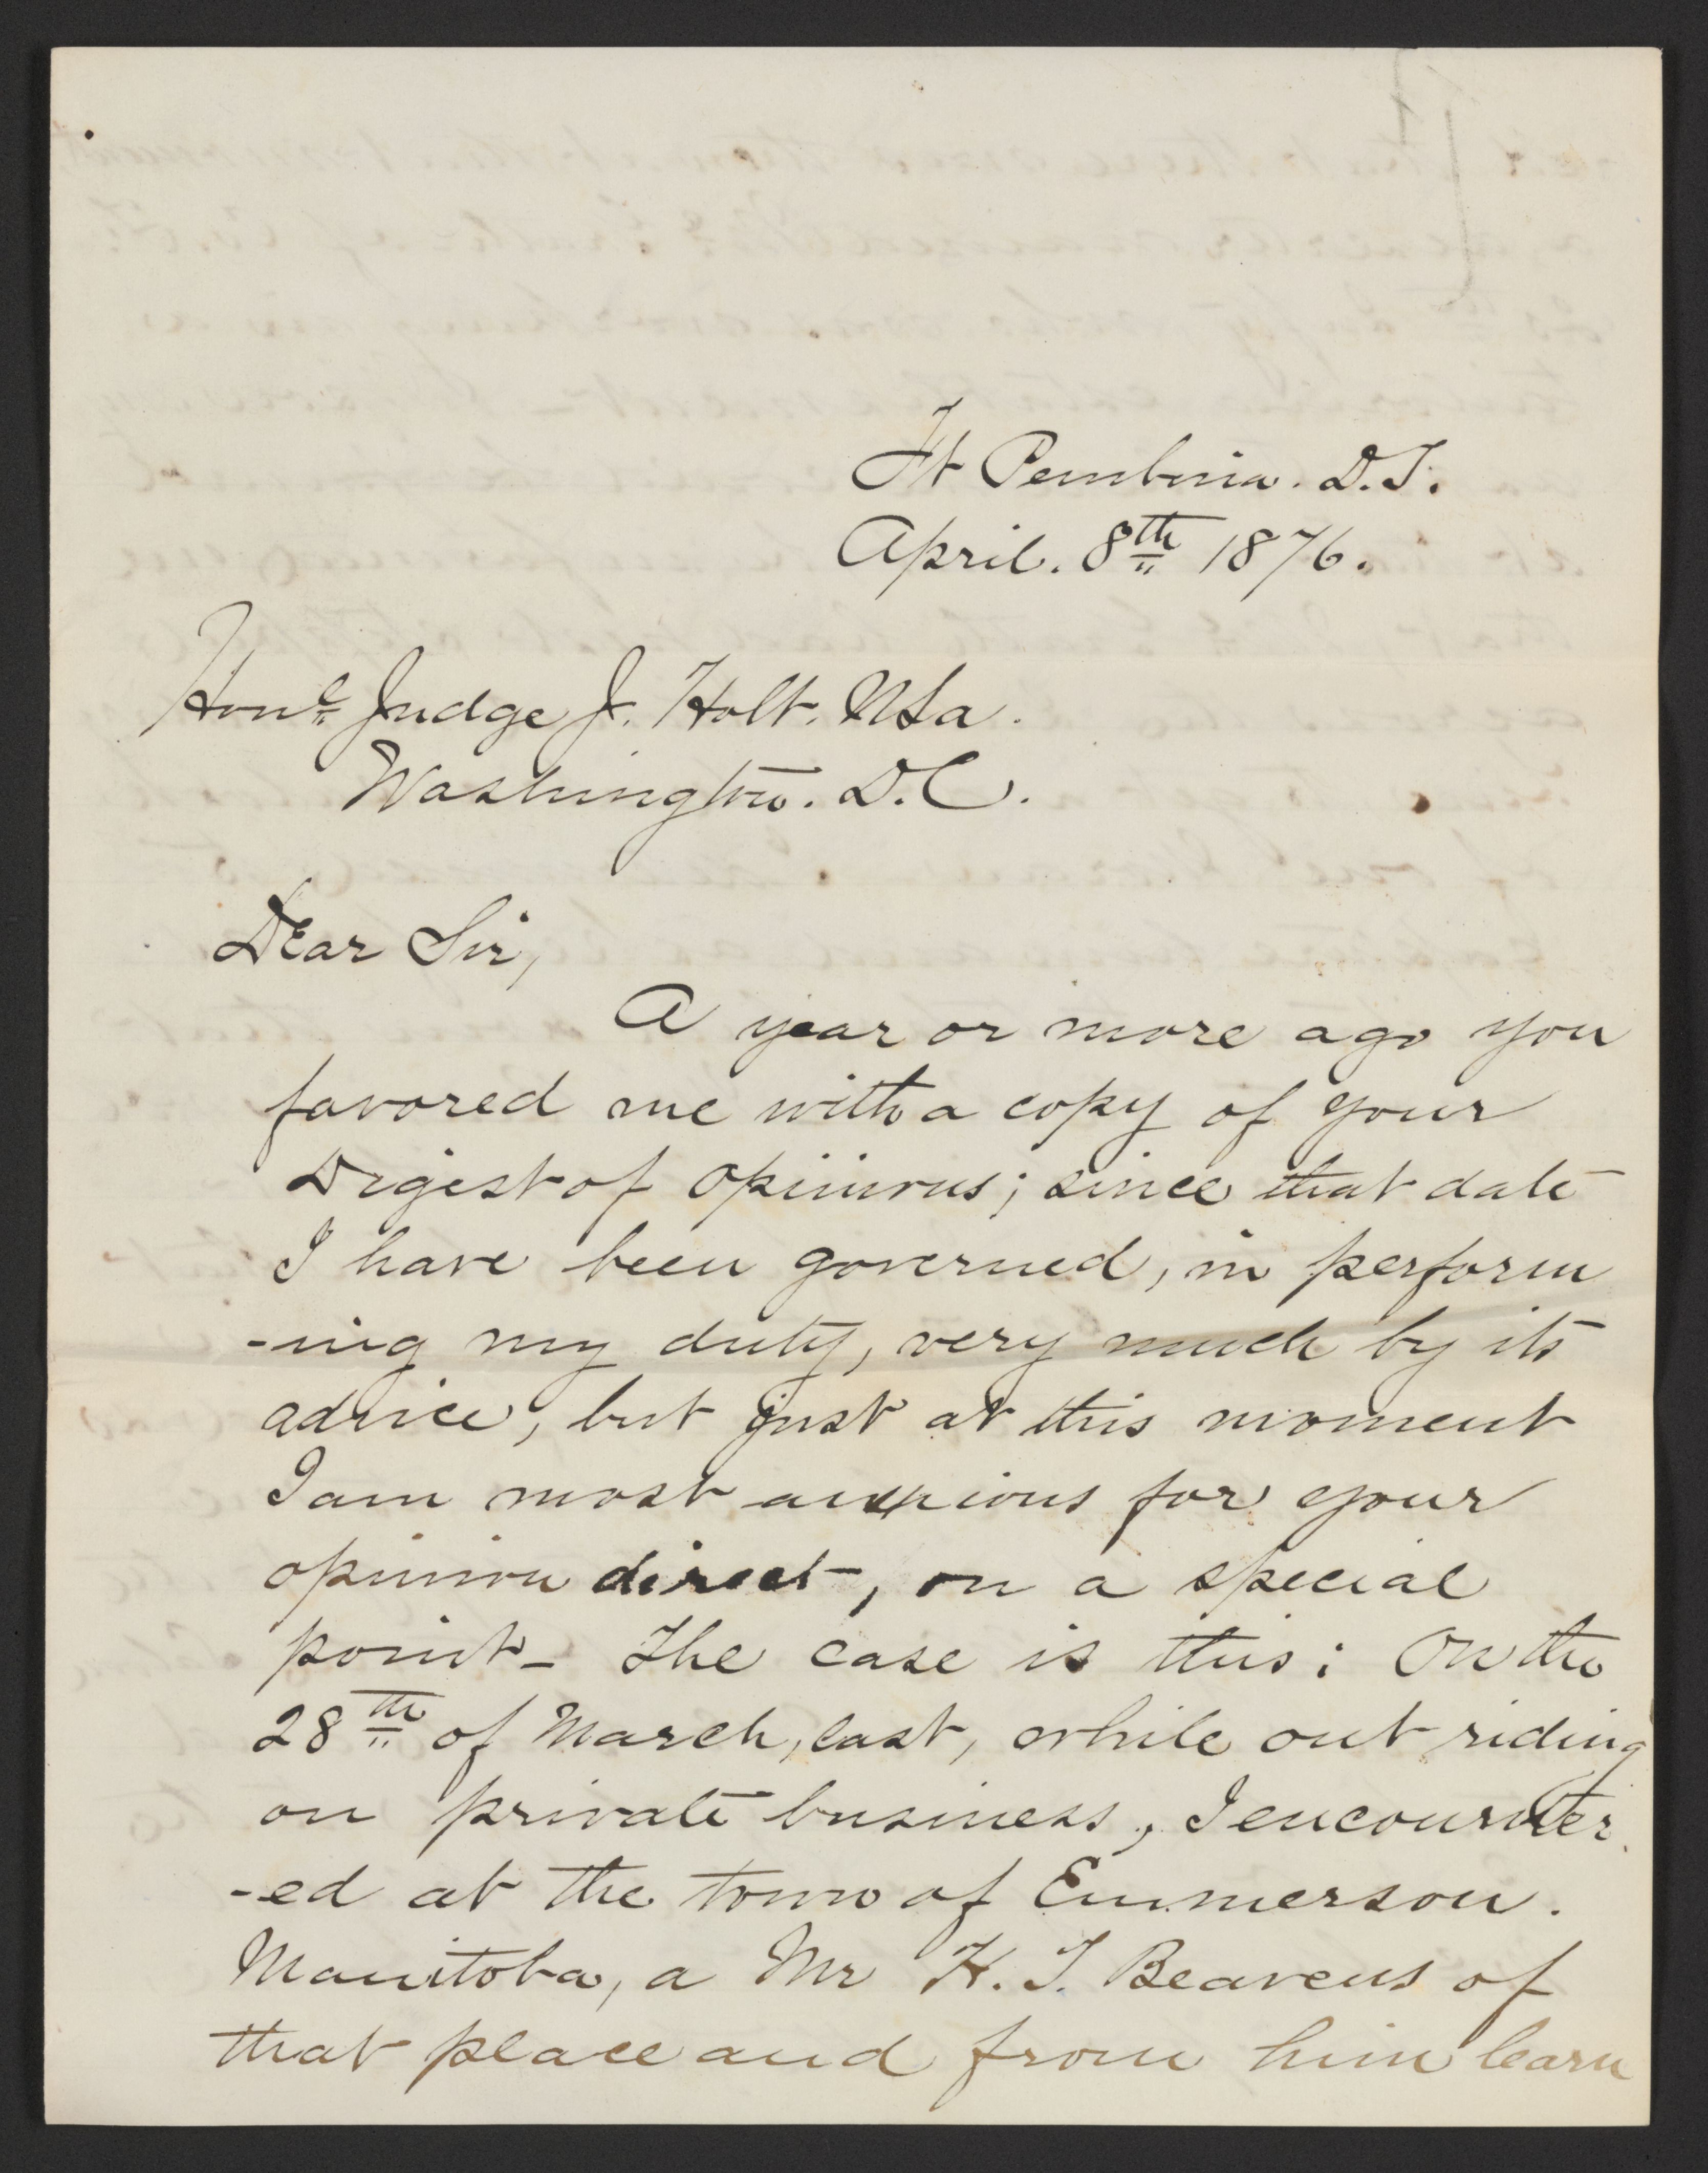 Ft Pembina. D.T.
April. 8th 1876.
Honl. Judge J. Holt. USa.
Washington. D.C.
Dear Sir,
A year or more ago you
favored me with a copy of your
Digest of Opinions; since that date
I have been governed, in perform
-ing my duty, very much by its
advice, but just at this moment
I am most anxious for your
opinion direct, on a special
point - The case is this: On the
28th of March, last, while out riding
on private business, I encounter
-ed at the town of Emmerson.
Manitoba, a Mr H. T. Beavens of
that place and from him learn